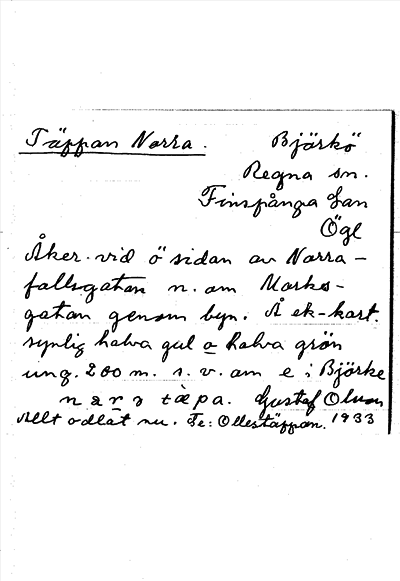 Täppan Norra. Björkö
Regna sn.
Finspånga Lan
Ögl
Åker vid ö sidan av Norra-
fallsgatan n. om Marks-
gatan genom byn. Å ek-kart.
synlig halva gul o halva grön
ung. 200 m. s. v. om e i Björke
nara täpa. Gustaf Olson
Allt odlat nu. Te: Ollestäppan. 1933